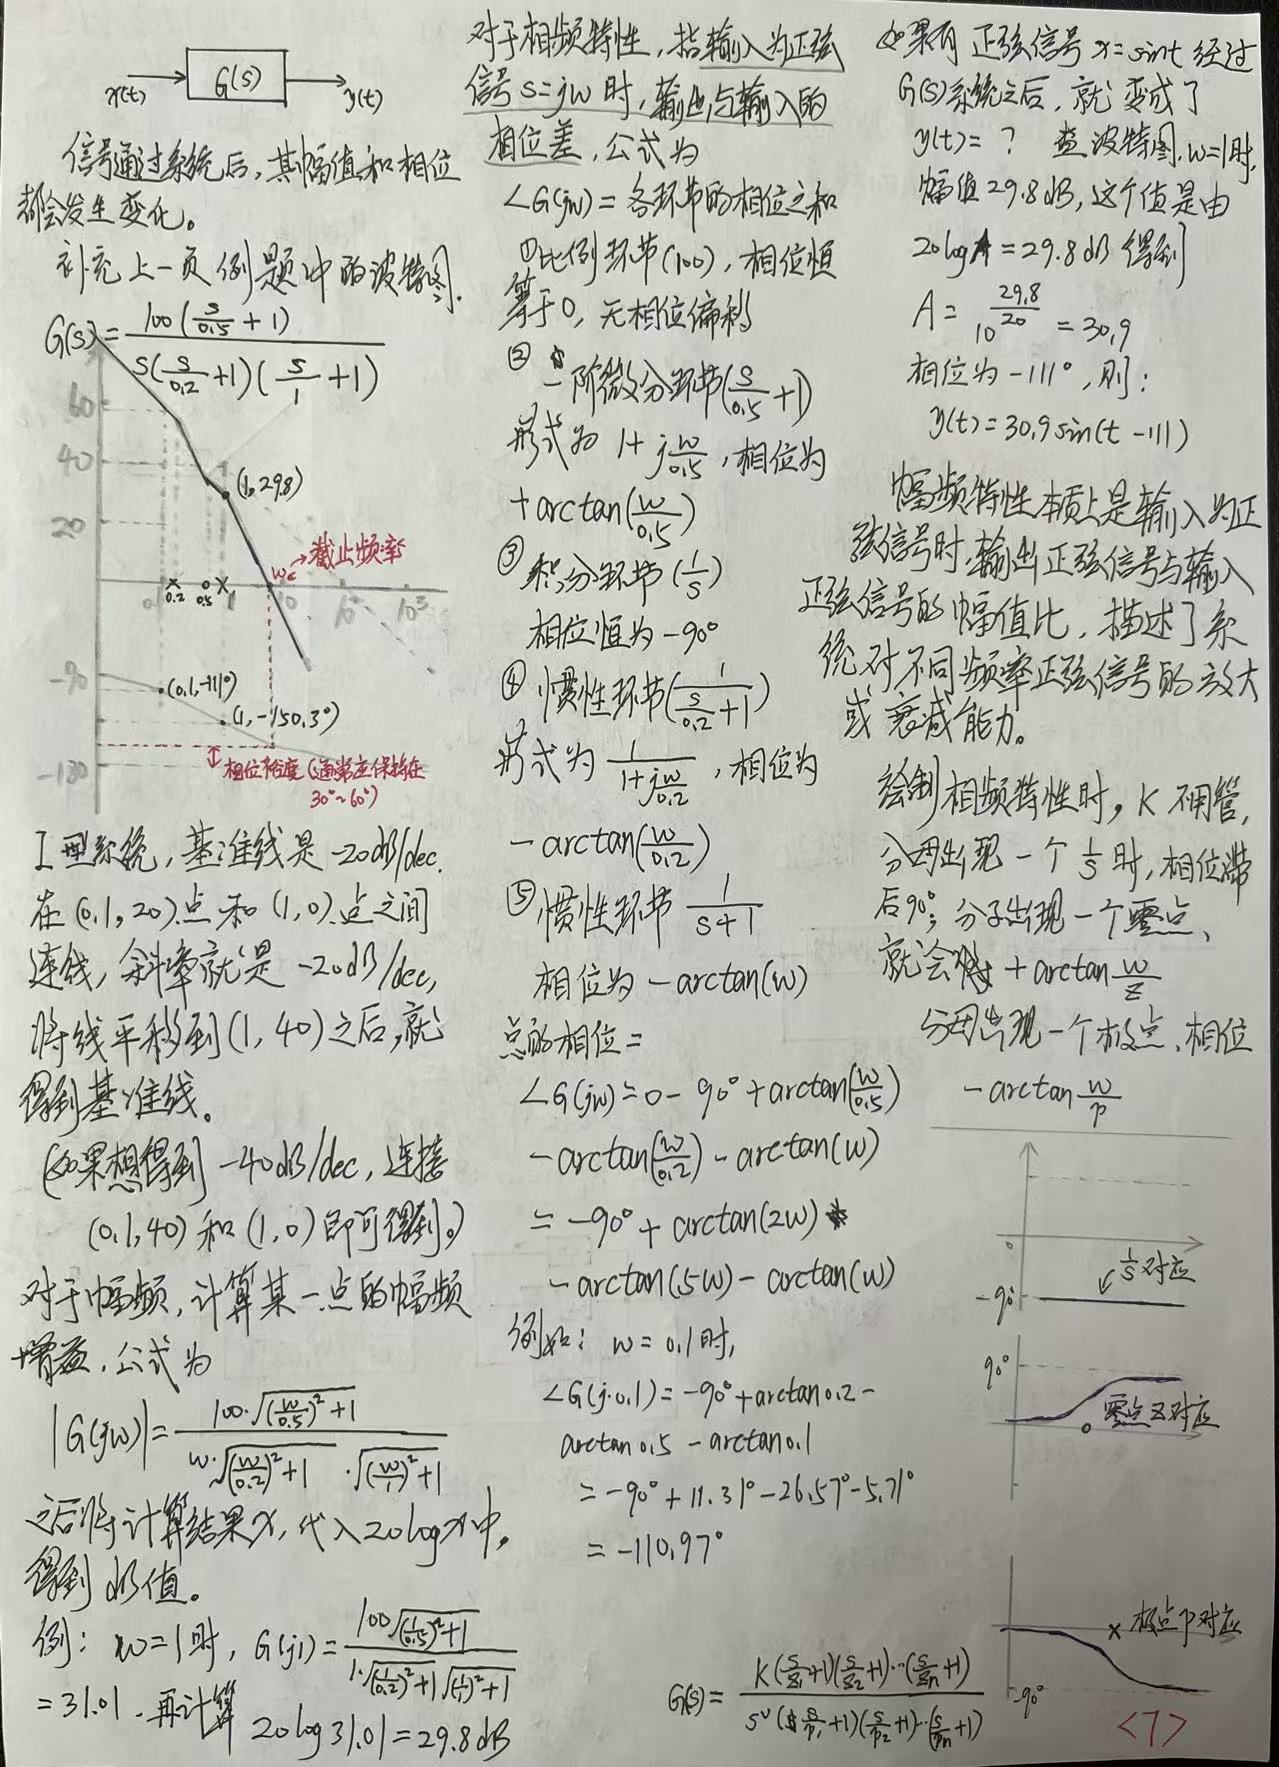 x(t) G(s) y(t)
信号通过系统后,其幅值和相位
都会发生变化。
补充上一页例题中的波特图.
G(s)= 100(s/0.5 + 1) / s(s/0.2 + 1)(s/1 + 1)
60
40
(1, 29.8)
20
ωc →截止频率
0.1 0.2 0.5 1 10 10² 10³
-90
(0.1, -111°)
(1, -150.3°)
相位裕度(通常应保持在
30°~60°)
-180
I型系统,基准线是-20dB/dec.
在(0.1, 20)点和(1, 0)点之间
连线,斜率就是-20dB/dec,
将线平移到(1, 40)之后,就
得到基准线。
(如果想得到-40dB/dec,连接
(0.1, 40)和(1, 0)即可得到。)
对于幅频,计算某一点的幅频
增益,公式为
|G(jω)| = 100·√((ω/0.5)²+1) / ω·√((ω/0.2)²+1)·√((ω/1)²+1)
之后将计算结果x,代入20logx中,
得到dB值。
例: ω=1时, G(j1)= 100√((1/0.5)²+1) / 1·√((1/0.2)²+1)√((1/1)²+1)
=31.01 .再计算 20log31.01=29.8dB
对于相频特性,指输入为正弦
信号s=jω时,输出与输入的
相位差,公式为
∠G(jω)=各环节的相位之和
①比例环节(100),相位恒
等于0,无相位偏移
②一阶微分环节(s/0.5 +1)
形式为 1+ j ω/0.5 ,相位为
+arctan(ω/0.5)
③积分环节(1/s)
相位恒为-90°
④惯性环节(1/(s/0.2 +1))
形式为 1/(1+jω/0.2) ,相位为
-arctan(ω/0.2)
⑤惯性环节 1/(s+1)
相位为-arctan(ω)
总的相位=
∠G(jω)=0-90°+arctan(ω/0.5)
-arctan(ω/0.2)-arctan(ω)
=-90°+arctan(2ω)
-arctan(5ω)-arctan(ω)
例如: ω=0.1时,
∠G(j·0.1)=-90°+arctan0.2-
arctan0.5-arctan0.1
=-90°+11.31°-26.57°-5.71°
=-110.97°
G(s)= K(s/z₁+1)(s/z₂+1)···(s/zn+1) / s^ν(s/p₁+1)(s/p₂+1)··(s/pn+1)
如果有正弦信号x=sint经过
G(s)系统之后,就变成了
y(t)=? 查波特图,ω=1时,
幅值29.8dB,这个值是由
20logA=29.8dB得到
A= 10^(29.8/20) =30.9
相位为-111°,则:
y(t)=30.9sin(t-111)
幅频特性本质上是输入为正
弦信号时,输出正弦信号与输入
正弦信号的幅值比,描述了系
统对不同频率正弦信号的放大
或衰减能力。
绘制相频特性时,K不用管,
分母出现一个1/s时,相位滞
后90°;分子出现一个零点,
就会 +arctan ω/z
分母出现一个极点,相位
-arctan ω/p
0
1/s对应
-90°
90°
零点z对应
极点p对应
-90°
<7>